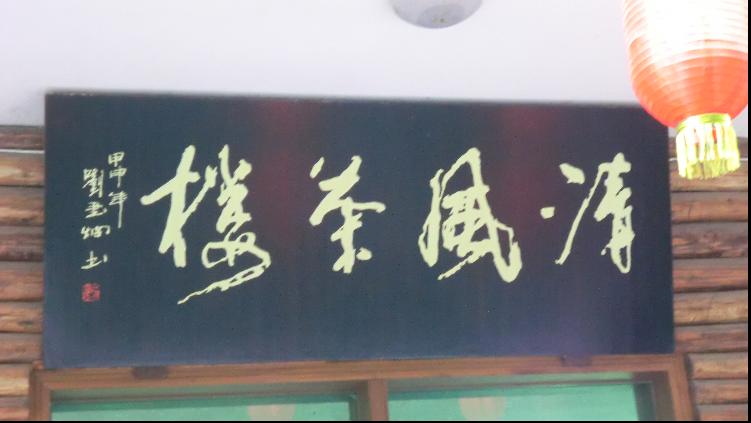 清風茶樓
甲申年
劉孟炯书